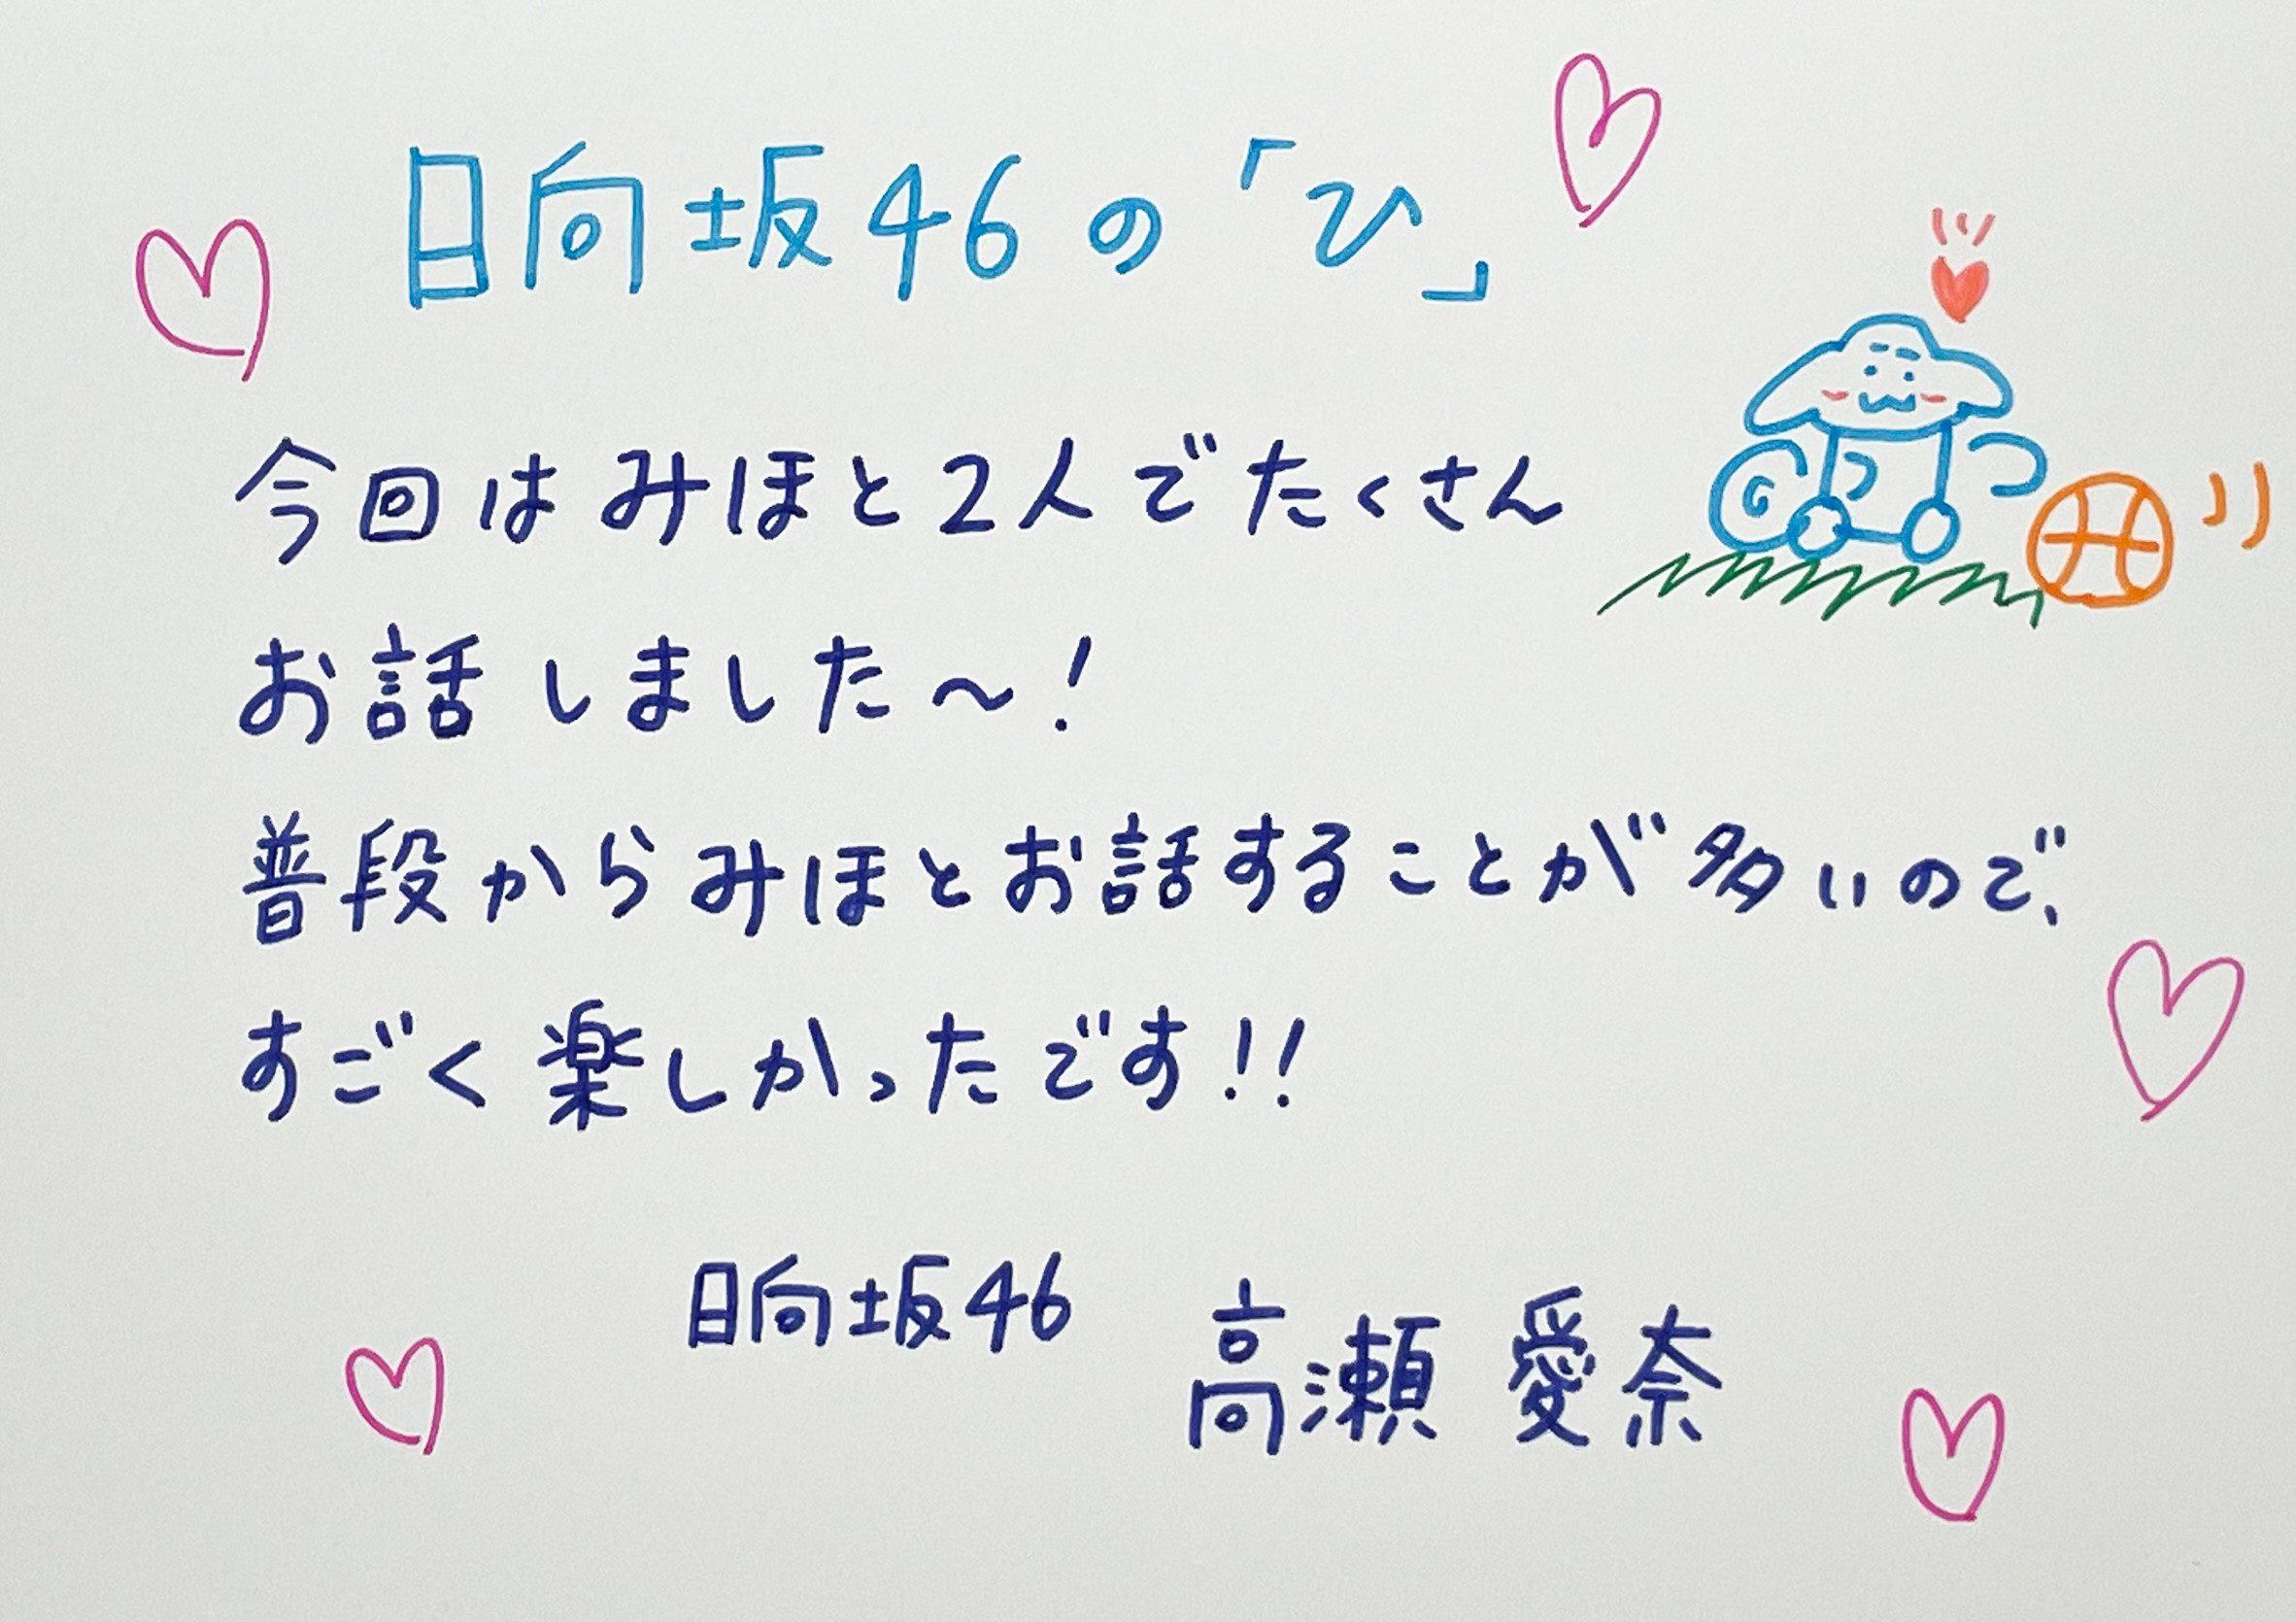 日向坂46の「ひ」
今回はみほと2人でたくさん
お話しました〜!
普段からみほとお話することが多いので、
すごく楽しかったです!!
日向坂46 高瀬 愛奈